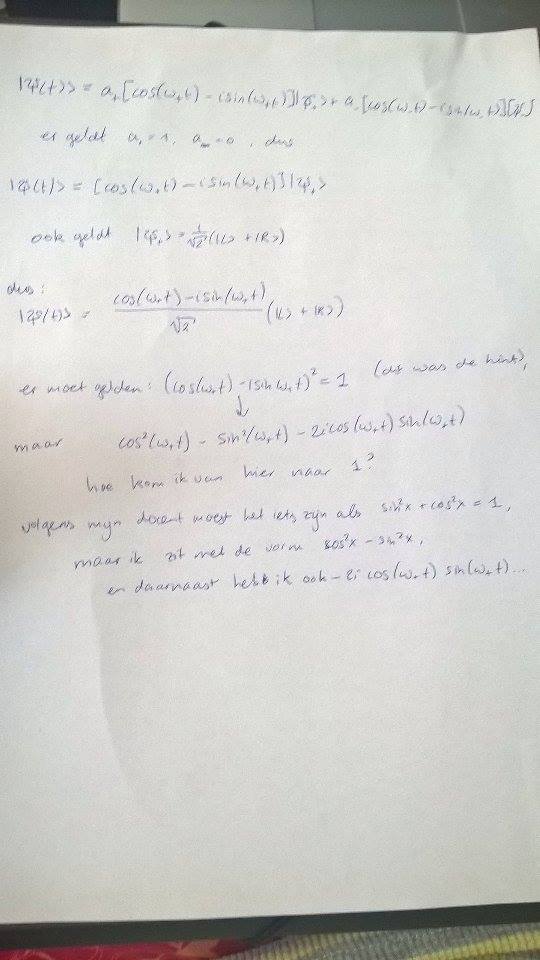 |ψ(t)> = a₊[cos(ω₊t) - i sin(ω₊t)]|ψ₊> + a₋[cos(ω₋t) - i sin(ω₋t)]|ψ₋>
er geldt a₊ = 1, a₋ = 0, dus
|ψ(t)> = [cos(ω₊t) - i sin(ω₊t)]|ψ₊>
ook geldt |ψ₊> = 1/√2 (|L> + |R>)
dus:
|ψ(t)> = (cos(ω₊t) - i sin(ω₊t))/√2 (|L> + |R>)
er moet gelden: (cos(ω₊t) - i sin ω₊t)² = 1 (dit was de hint),
↓
maar cos²(ω₊t) - sin²(ω₊t) - 2i cos(ω₊t) sin(ω₊t)
hoe kom ik van hier naar 1?
volgens mijn docent moest het iets zijn als sin²x + cos²x = 1,
maar ik zit met de vorm cos²x - sin²x,
en daarnaast heb ik ook - 2i cos(ω₊t) sin(ω₊t)...